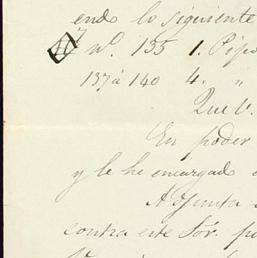 endo lo siguiente
nº. 135 1. Pipo
137 á 140 4. "
Que V.
En poder
y le he encargado
Adjunta
contra este Sör. po